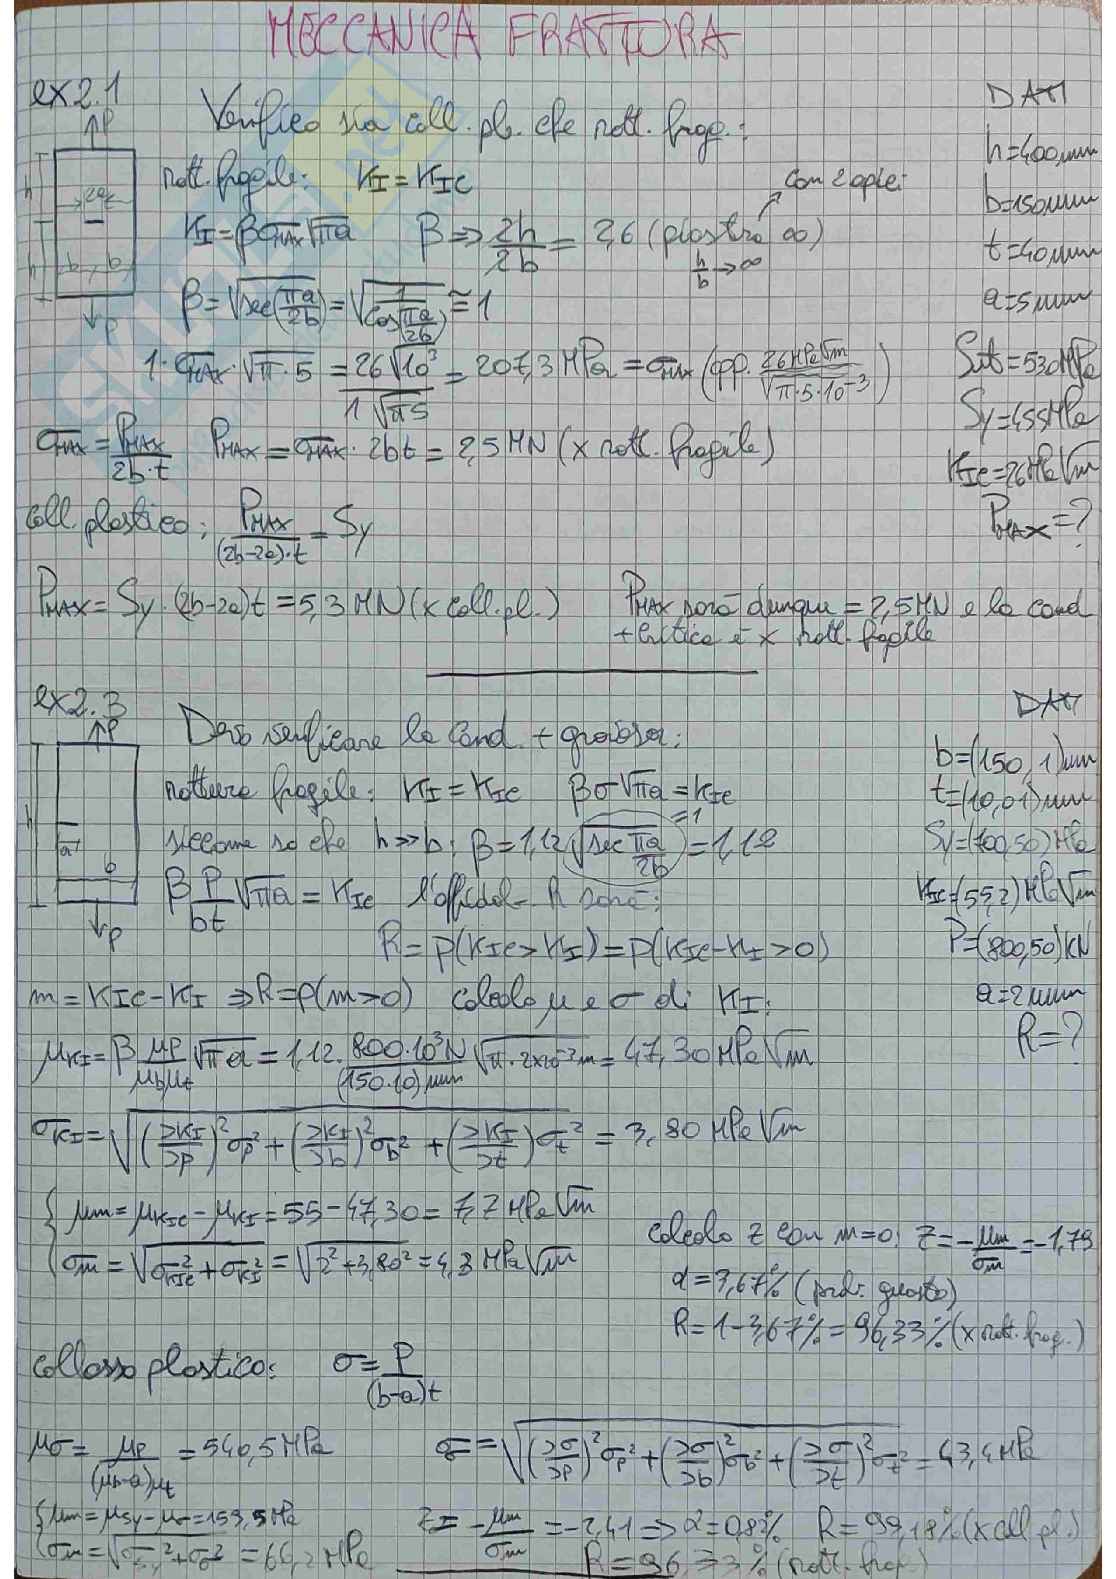 MECCANICA FRATTURA
ex 2.1
DATI
Verifico sia coll. pl. che rott. frag.:
h=400mm
b=150mm
t=40mm
a=5mm
Sut=530MPa
Sy=455MPa
KIc=26MPa√m
PMAX=?
P
h
2a
h
b b
P
rott. fragile: KI = KIc
con 2 apici
KI = βσMAX√πa β ⇒ 2h/2b = 2,6 (piastra ∞)
h/b → ∞
β = √sec(πa/2b) = √(1/cos(πa/2b)) ≅ 1
1·σMAX·√π·5 = 26√10³/1√π5 = 207,3 MPa = σMAX (opp. 26MPa√m/√π·5·10⁻³)
σMAX = PMAX/2b·t PMAX = σMAX · 2bt = 2,5 MN (x rott. fragile)
coll. plastico: PMAX/(2b-2a)·t = Sy
PMAX = Sy · (2b-2a)t = 5,3 MN (x coll. pl.) PMAX sarà dunque = 2,5MN e la cond
+ critica è x rott. fragile
ex 2.3
DATI
Devo verificare la cond. + gravosa:
b=(150, 1)mm
t=(10, 0.1)mm
Sy=(700,50)MPa
KIc=(55,2)MPa√m
P=(800,50)kN
a=2mm
R=?
P
h
a
b
P
rottura fragile: KI = KIc βσ√πa = KIc
siccome so che h>>b: β = 1,12 √sec πa/2b = 1,12
=1
β P/bt √πa = KIc l'affidab. R sarà:
R = p(KIc > KI) = p(KIc - KI > 0)
m = KIc - KI ⇒ R = p(m>0) calcolo μ e σ di KI:
μKI = β μP/μbμt √πa = 1,12 · 800·10³N/(150·10)mm √π·2x10⁻³m = 47,30 MPa√m
σKI = √(∂KI/∂P)²σP² + (∂KI/∂b)²σb² + (∂KI/∂t)²σt² = 3,80 MPa√m
{ μm = μKIc - μKI = 55 - 47,30 = 7,7 MPa√m
σm = √σ²KIc + σ²KI = √2² + 3,80² = 4,3 MPa√m
calcolo z con m=0: z = - μm/σm = -1,79
α = 3,67% (prob. guasto)
R = 1 - 3,67% = 96,33% (x rott. frag.)
collasso plastico: σ = P/(b-a)t
μσ = μP/(μb-a)μt = 540,5 MPa σσ = √(∂σ/∂P)²σP² + (∂σ/∂b)²σb² + (∂σ/∂t)²σt² = 43,4 MPa
{ μm = μSy - μσ = 159,5 MPa z = - μm/σm = -2,41 ⇒ α = 0,82% R = 99,18% (x coll. pl.)
σm = √σSy² + σσ² = 66,2 MPa R = 96,33% (rott. frag.)